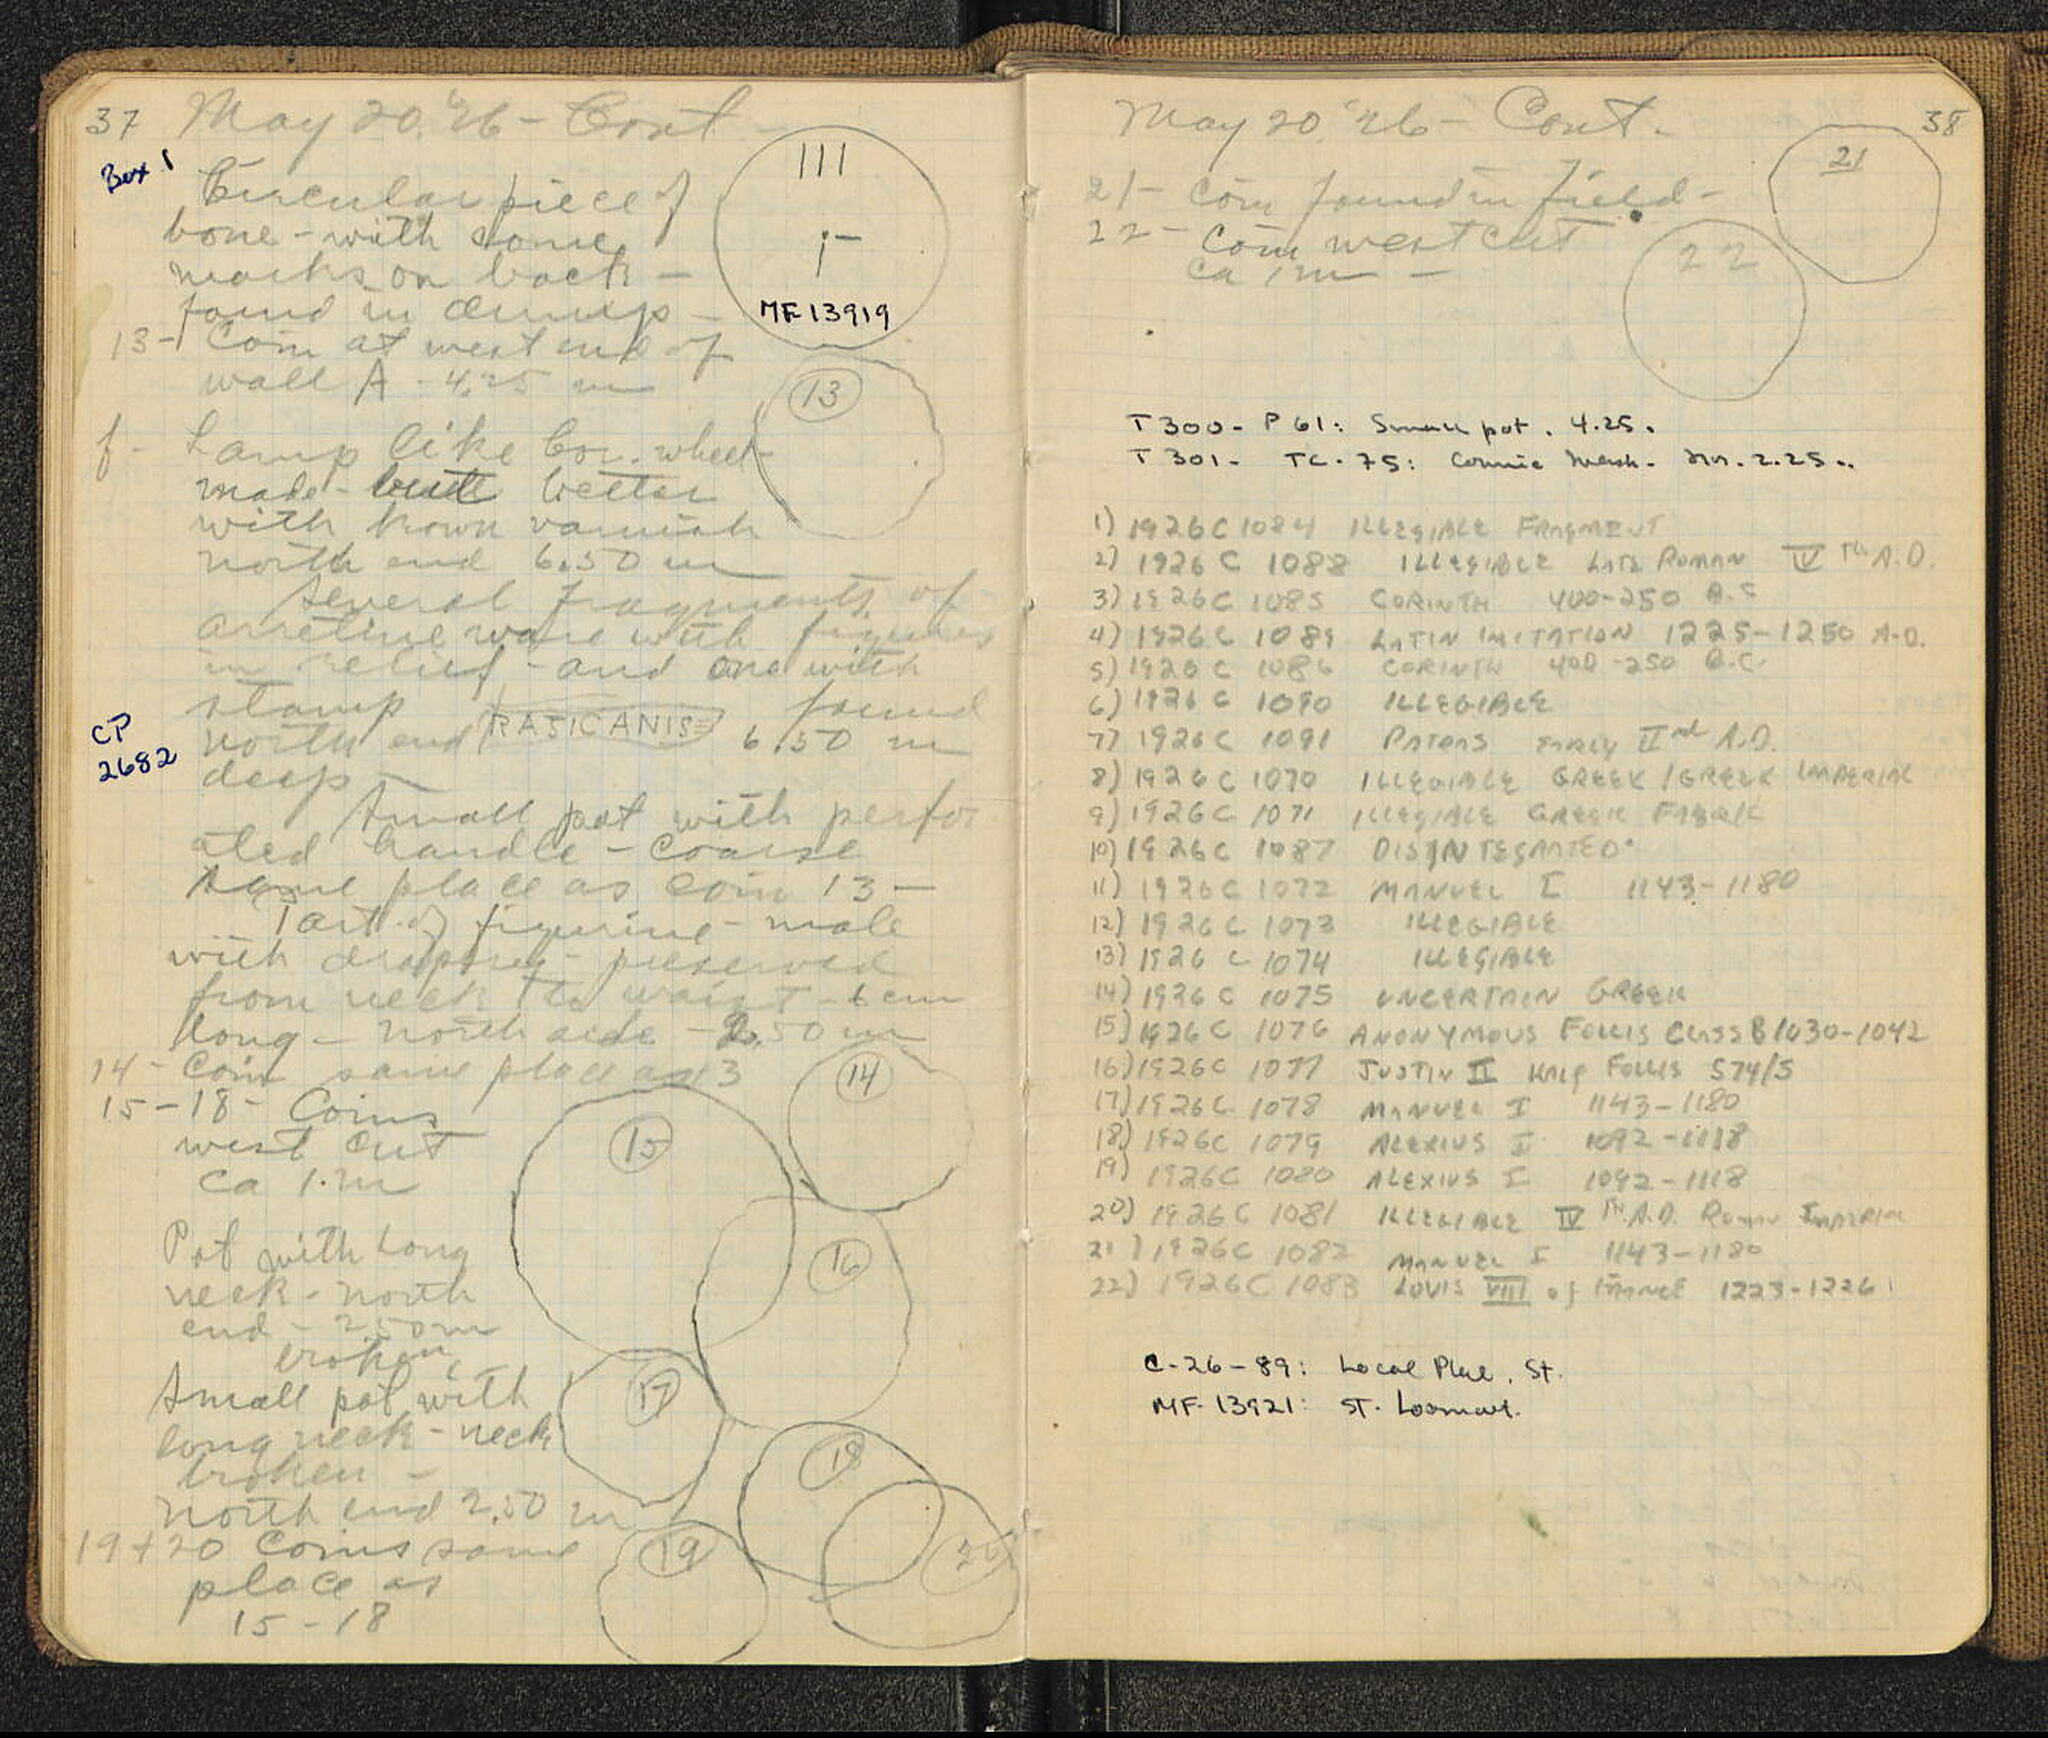 37 May 20. '26 - Cont -
Box 1
Circular piece of
bone - with some
marks on back -
found in dump -
III
MF 13919
13 - Coin at west end of
wall A - 4.25 m
13
f - Lamp like Cor. wheel-
made - but better
with brown varnish
north end 6.50 m
Several fragments of
arretine ware with figures
in relief - and one with
stamp RASICANIS found
north end 6.50 m
deep -
CP
2682
Small pot with perfor
ated handle - coarse
same place as coin 13 -
Part of figurine - male
with drapery - preserved
from neck to waist - 6 cm
long - north side - 2.50 m
14 - Coin same place as 13
14
15 - 18 - Coins
west cut
ca 1. m
15
16
Pot with long
neck - north
end - 2.50 m
broken
Small pot with
long neck - neck
broken -
north end 2.50 m
17
18
19 + 20 Coins same
place as
15 - 18
19
20
May 20. '26 - Cont. 38
21 - Coin found in field -
22 - Coin west cut
ca 1 m -
21
22
T 300 - P 61: Small pot. 4.25.
T 301 - TC - 75: Comic Mask. 2.25..
1) 1926 C 1084 ILLEGIBLE FRAGMENT
2) 1926 C 1088 ILLEGIBLE LATE ROMAN IV TH A.D.
3) 1926 C 1085 CORINTH 400-250 B.C
4) 1926 C 1089 LATIN IMITATION 1225-1250 A.D.
5) 1926 C 1086 CORINTH 400-250 B.C.
6) 1926 C 1090 ILLEGIBLE
7) 1926 C 1091 PATRAS EARLY IInd A.D.
8) 1926 C 1070 ILLEGIBLE GREEK / GREEK IMPERIAL
9) 1926 C 1071 ILLEGIBLE GREEK FABRIC
10) 1926 C 1087 DISINTEGRATED
11) 1926 C 1072 MANUEL I 1143-1180
12) 1926 C 1073 ILLEGIBLE
13) 1926 C 1074 ILLEGIBLE
14) 1926 C 1075 UNCERTAIN GREEK
15) 1926 C 1076 ANONYMOUS FOLLIS CLASS B 1030-1042
16) 1926 C 1077 JUSTIN II HALF FOLLIS 574/5
17) 1926 C 1078 MANUEL I 1143-1180
18) 1926 C 1079 ALEXIUS I 1092-1118
19) 1926 C 1080 ALEXIUS I 1092-1118
20) 1926 C 1081 ILLEGIBLE IV TH A.D. ROMAN IMPERIAL
21) 1926 C 1082 MANUEL I 1143-1180
22) 1926 C 1083 LOUIS VIII of FRANCE 1223-1226
C-26-89: Local St.
MF-13921: ST.